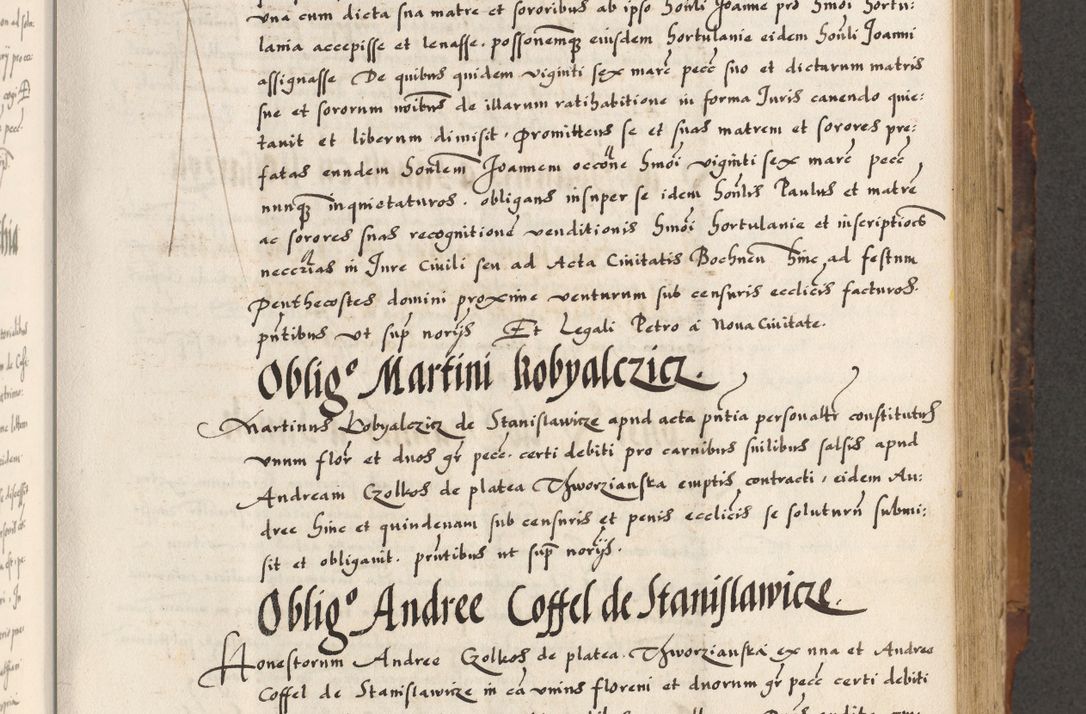 una cum dicta sua matre et sororibus ab ipso honli Joanne pro hmoi hortu:
lania accepisse et levasse. possonemq eiusdem hortulanie eidem honli Joanni
assignasse De quibus quidem viginti sex marc pecc suo et dictarum matris
sue et sororum noibus de illarum ratihabitione in forma Juris cavendo quie:
tavit et liberum dimisit, promittens se et suas matrem et sorores pre:
fatas eundem honlem Joannem occone hmoi viginti sex marc pecc
nunq inquietaturos. obligans insuper se idem honlis Paulus et matre
ac sorores suas recognitione venditionis hmoi hortulanie et inscriptioes
neccrias in Jure Civili seu ad Acta Civitatis Bochnen hinc ad festum
Penthecostes domini proxime venturum sub censuris ecclicis facturos.
pntibus ut sup norijs Et Legali Petro a Nova Civitate.
Oblig° Martini Kobyalczicz.
Martinus Kobyalczicz de Stanislawicze apud acta pntia personaltr constitutus
unum flor et duos gr pecc. certi debiti pro carnibus suilibus salsis apud
Andream Czolkos de platea Thworzianska emptis contracti, eidem An:
dree hinc et quindenam sub censuris et penis ecclicis se soluturu submi:
sit et obligavit. prntibus ut sup norijs.
Oblig° Andree Coffel de Stanislawicze.
Honestorum Andree Czolkos de platea Thworzianska ex una et Andree
Coffel de Stanislawicze in ca unius floreni et duorum gr pecc certi debiti